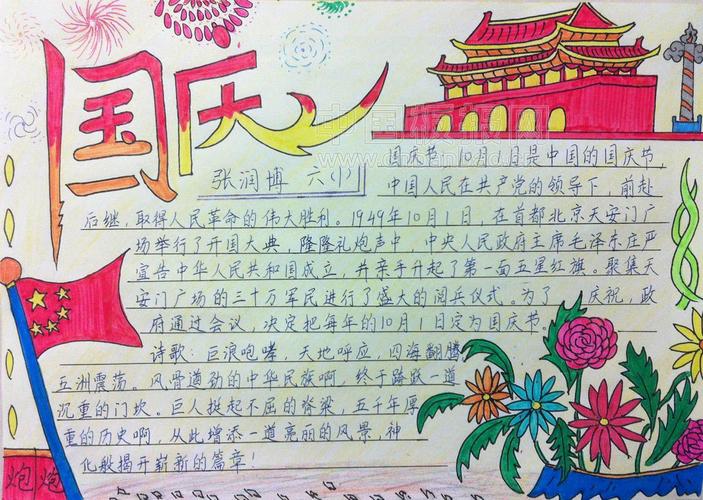 国庆
张润博 六(1)
国庆节,10月1日是中国的国庆节,
中国人民在共产党的领导下,前赴
后继,取得人民革命的伟大胜利。1949年10月1日,在首都北京天安门广
场举行了开国大典,隆隆礼炮声中,中央人民政府主席毛泽东庄严
宣告中华人民共和国成立,并亲手升起了第一面五星红旗。聚集天
安门广场的三十万军民进行了盛大的阅兵仪式。为了 庆祝,政
府通过会议,决定把每年的10月1日定为国庆节。
诗歌:巨浪咆哮,天地呼应,四海翻腾
五洲震荡。风骨遒劲的中华民族啊,终于跨跃一道
沉重的门坎。巨人挺起不屈的脊梁,五千年厚
重的历史啊,从此增添一道亮丽的风景,神
化般揭开崭新的篇章!
炮 炮